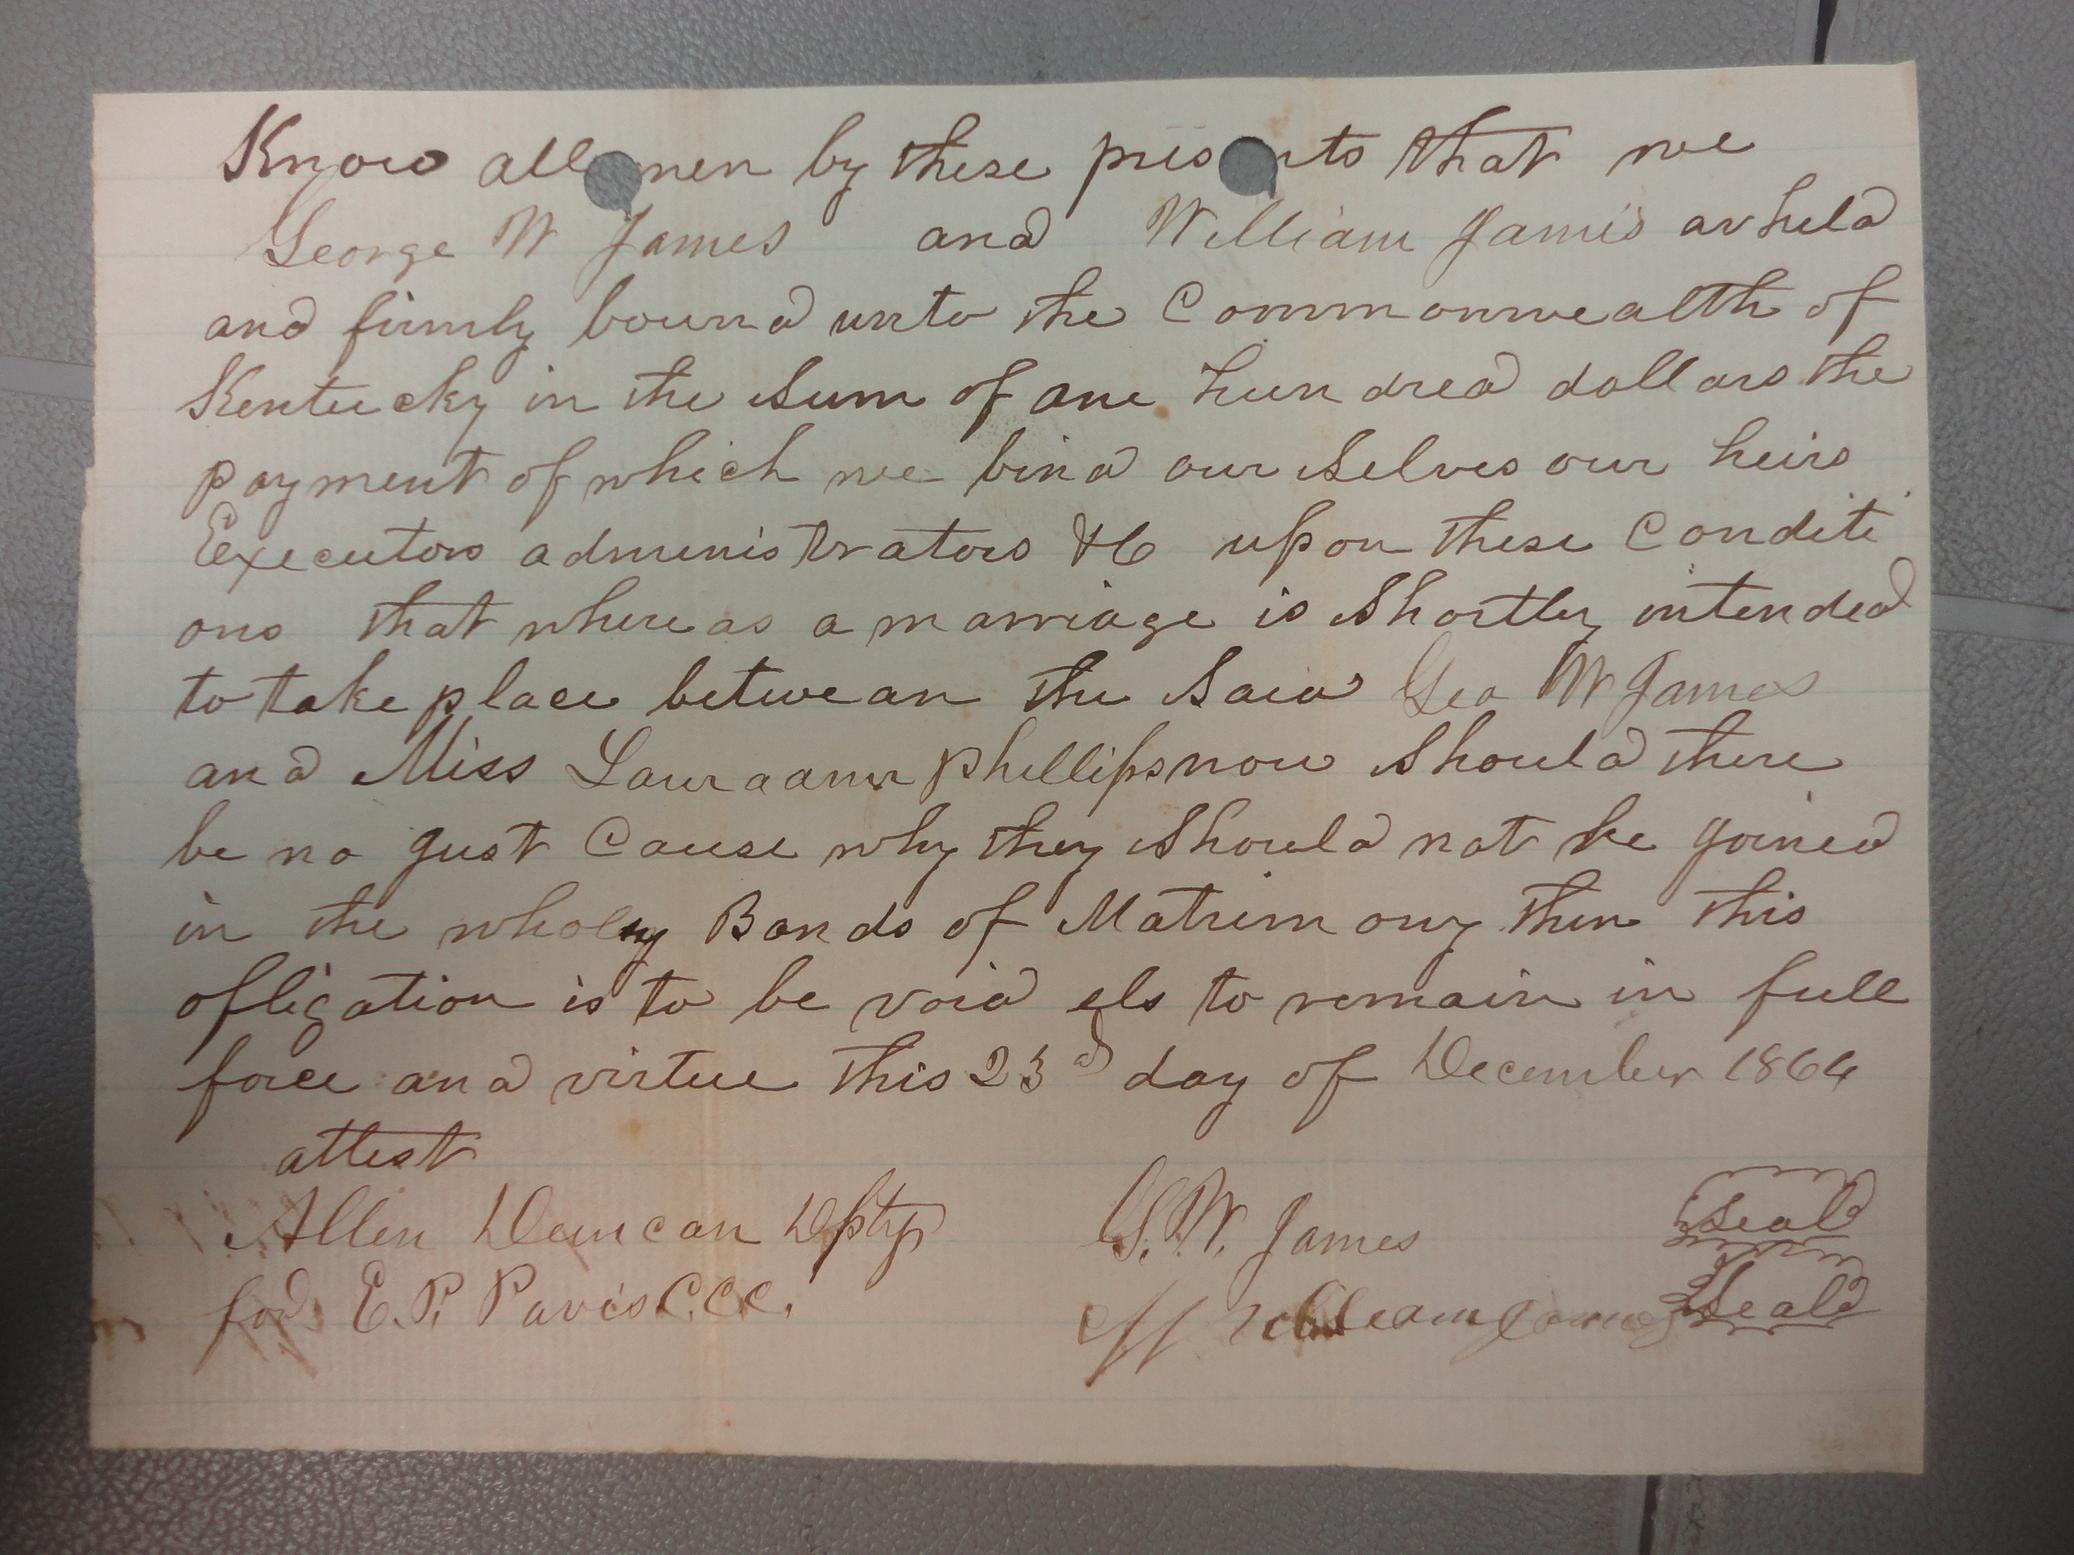 Know all men by these presents that we
George W James and William James ar held
and firmly bound unto the Commonwealth of
Kentucky in the Sum of one hundred dollars the
payment of which we bind our selves our heirs
Executors administrators &C upon these Conditi
ons that whereas a marriage is Shortly intended
to take place between the Said Geo W James
and Miss Lauraann Phillips now Should there
be no Just Cause why they Should not be Joined
in the wholy Bonds of Matrimony then this
obligation is to be void els to remain in full
force and virtue this 23d day of December 1864
attest
Allen Duncan Dpty G. W. James Seal
for E. P. Davis C.C.C. William James Seal